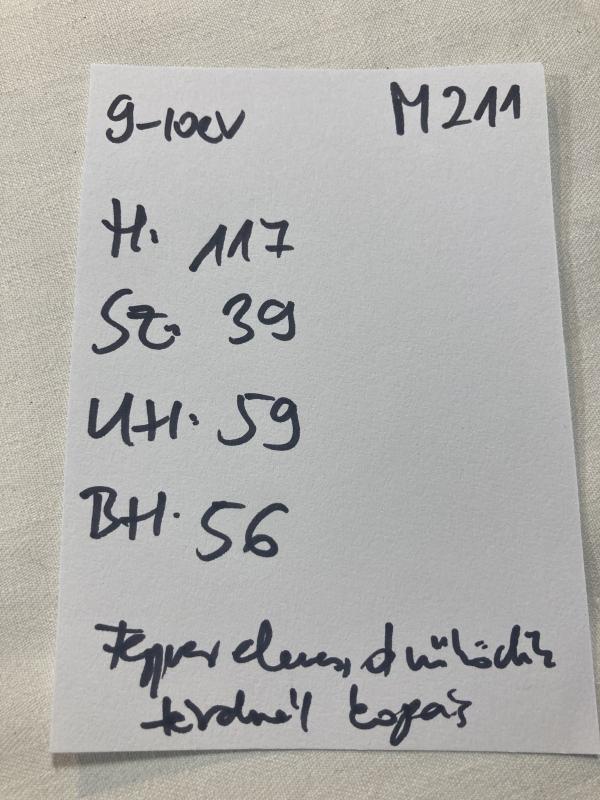 9-10év M211
H. 117
Sz. 39
UH. 59
BH. 56
Tépőzár elemes, működik
térdnél kopás